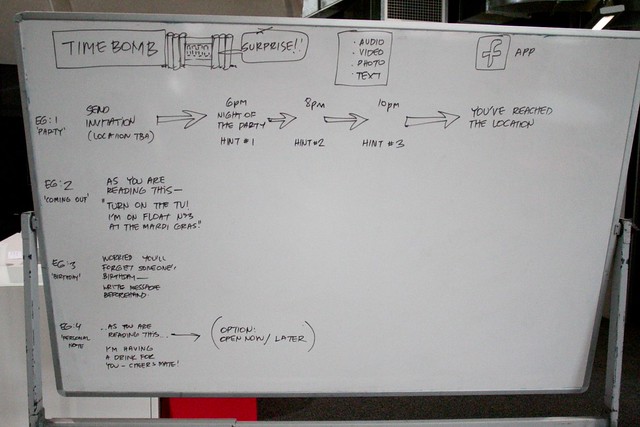 TIME BOMB
SURPRISE!!
· AUDIO
· VIDEO
· PHOTO
· TEXT
f APP
EG: 1
'PARTY'
SEND
INVITATION
(LOCATION TBA)
6pm
NIGHT OF
THE PARTY
HINT #1
8pm
HINT #2
10pm
HINT #3
YOU'VE REACHED
THE LOCATION
EG: 2
'COMING OUT'
AS YOU ARE
READING THIS—
"TURN ON THE TV!
I'M ON FLOAT Nº3
AT THE MARDI GRAS."
EG: 3
'BIRTHDAY'
WORRIED YOU'LL
FORGET SOMEONE'S
BIRTHDAY—
WRITE MESSAGE
BEFOREHAND.
EG: 4
'PERSONAL
NOTE'
...AS YOU ARE
READING THIS...
I'M HAVING
A DRINK FOR
YOU - CHEERS MATE!
(OPTION:
OPEN NOW / LATER)